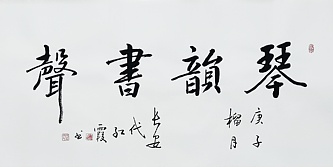 琴韻書聲
庚子
榴月
長安
代紅
霞書